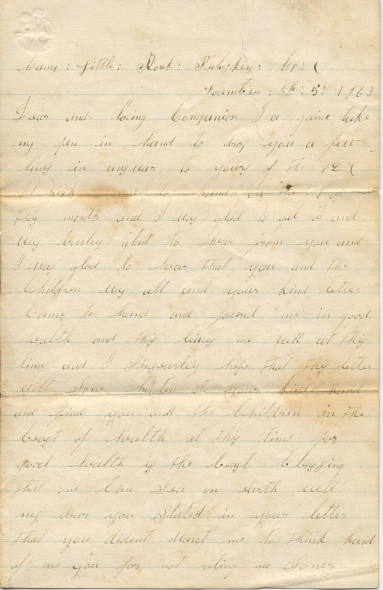 Camp: Little: Rock: Pulaskey:
November: the: 5: 1863
Dear and loving Companion I a gaine take
my pen in hand to drop you a few
lines in answer to yours of the 12
to hand on the
this month and I was glad to get it and
was truley glad to hear from you and
I was glad to hear that you and the
Children was all and your kind letter
Came to hand and found me in good
health and this leaves me well at this
time and I sincerley hope that this letter
will sone to your kind hand
and find you and the Children in the
best of health at this time for
good health is the best blessing
that one Can on earth well
my dear you stated in your letter
that you dident want me to think hard
of me you for not riting me soner